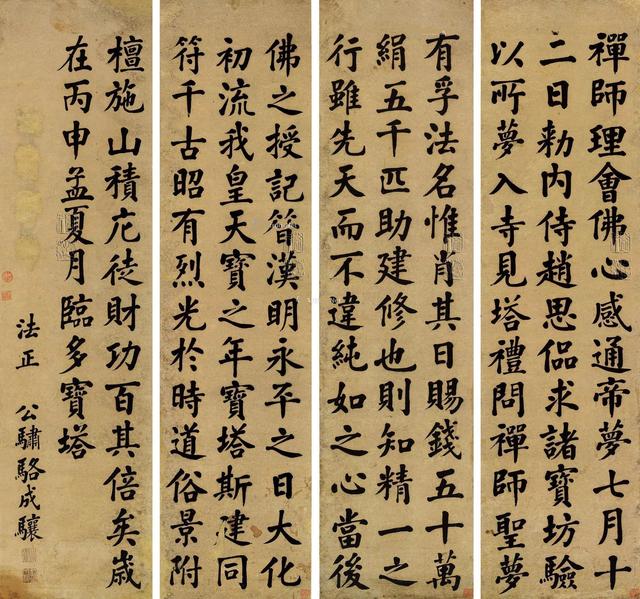 禪師理會佛心感通帝夢七月十
二日勅内侍趙思偘求諸寶坊驗
以所夢入寺見塔禮問禪師聖夢
有孚法名惟肖其日賜錢五十萬
絹五千匹助建修也則知精一之
行雖先天而不違純如之心當後
佛之授記昔漢明永平之日大化
初流我皇天寶之年寶塔斯建同
符千古昭有烈光於時道俗景附
檀施山積庀徒財功百其倍矣歲
在丙申孟夏月臨多寶塔
法正
公驌駱成驤